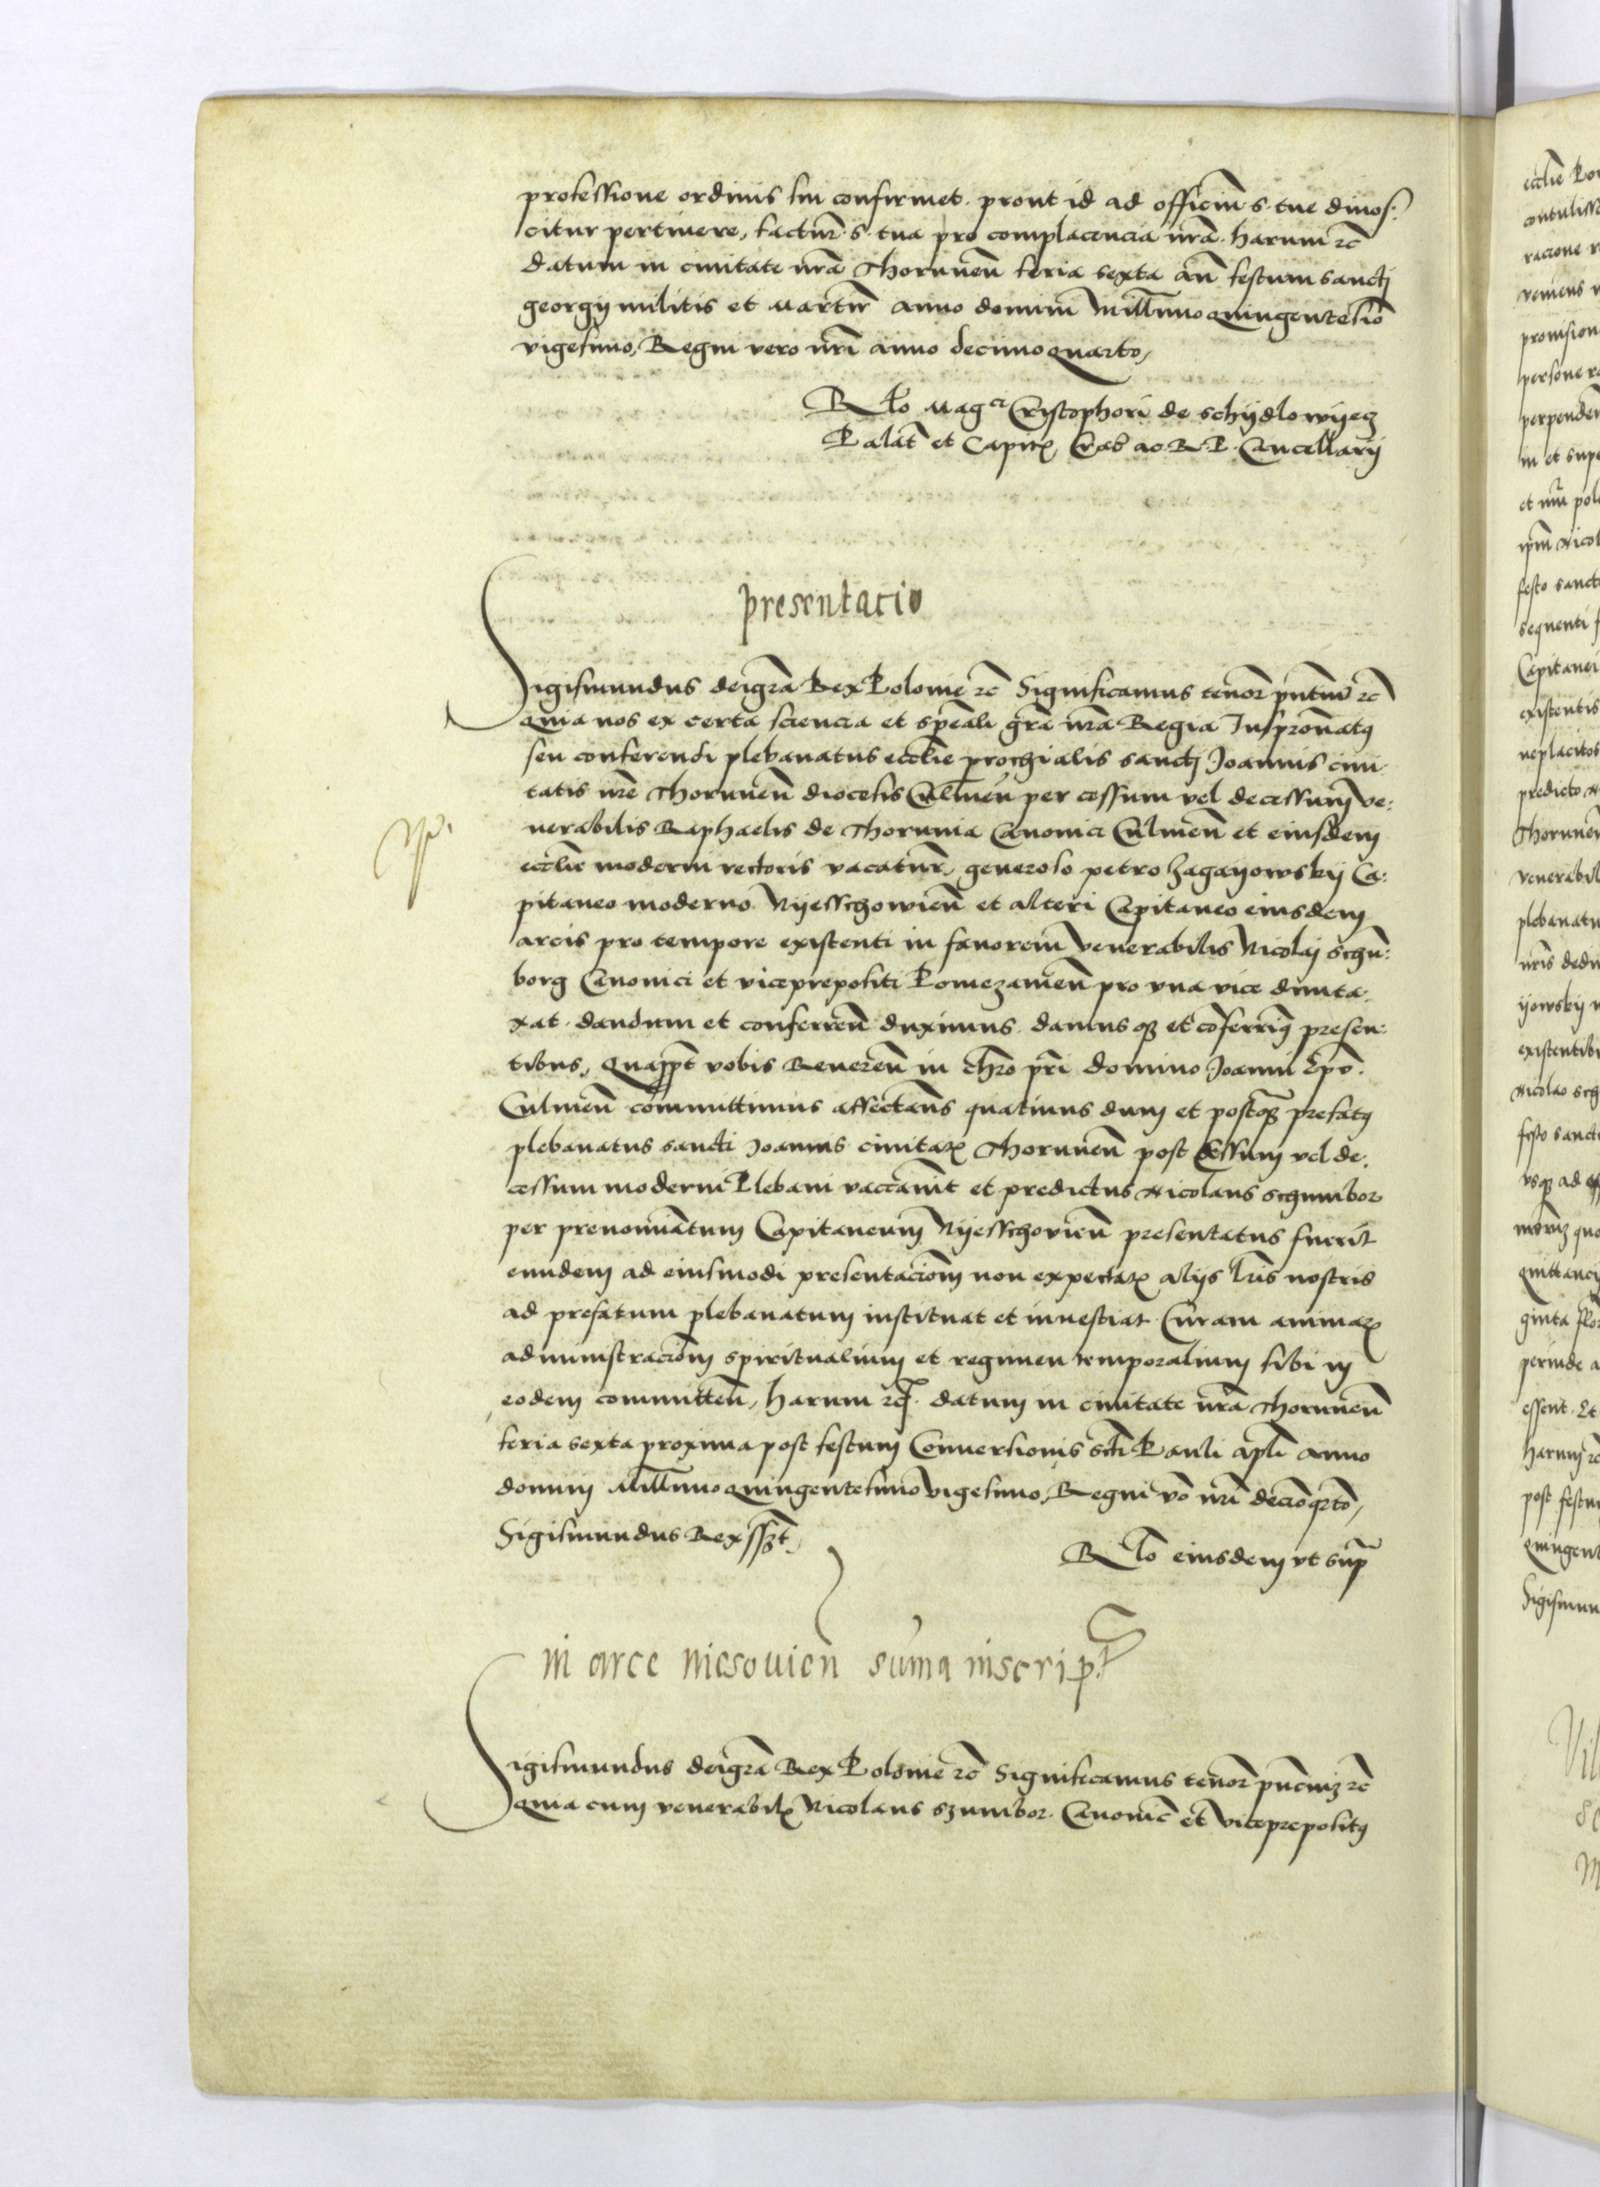 professione ordinis sui confirmet. prout id ad officiu͂ s. tue dinos.
citur pertinere, factur͂ s. tua pro complacencia nr͂a. harum rc͂
datum in ciuitate nr͂a Thorunen͂ feria sexta an͂ festum sanctj
georgij militis et Martir͂ anno domini Mill͂imo Quingentesi͂o
vigesimo, Regni vero nr͂i anno decimo Quarto,
Rl͂o Mag.ci Cristophori de Schijdlowijecz
Palat͂ et Capit͂ Crac͂ ac R. P. Cancellarij
presentacio
Sigismundus dei gr͂a Rex Polonie rc͂ Significamus tenor͂ pn͂tiu͂ rc͂
Quia nos ex certa sciencia et spe͂ali gr͂a nr͂a Regia Jus pronat͂ꝯ
seu conferendi plebanatus eccl͂ie prochialis sanctj Joannis ciui
tatis nr͂e Thorunen͂ diocesis Culmen͂ per cessum vel decessum ve:
nerabilis Raphaelis de Thorunia Canonici Culmen͂ et eiusdem
eccl͂ie moderni rectoris vacatur͂, generoso petro Zagayowskij Ca:
pitaneo moderno Nijesschowien͂ et alteri Capitaneo eiusdem
arcis pro tempore existenti in fauorem venerabilis Nicolaj schu͂:
borg Canonici et viceprepositi Pomezanien͂ pro vna vice dunta.
xat. dandum et conferren͂ duximus. damus qꝫ et co͂ferimꝯ presen:
tibus, Quap͂pt͂ vobis Reueren͂ in chr͂o pr͂i domino Joanni Ep͂o.
Culmen͂ committimus affectan͂s quatinus dum et postqꝫ prefatꝯ
plebanatus sancti Joannis ciuitat͂ Thorunen͂ post Cessum vel de.
cessum moderni Plebani vaccauerit et predictus Nicolaus schumbor
per prenominatum Capitaneum Nijesschovien͂ presentatus fuerit
eundem ad eiusmodi presentaciom͂ non expectat͂ alijs lr͂is nostris
ad prefatum plebanatum instituat et inuestiat. Curam animar͂
administraciom͂ spiritualium et regimen temporalium sibi in
eodem committen͂, harum rc͂. datum in ciuitate nr͂a Thorunen͂
feria sexta proxima post festum Conuersionis sct͂i Pauli apl͂i anno
domini Mill͂imo Quingentesimo vigesimo, Regni v͂o nr͂i deci͂o qr͂to,
Sigismundus Rex sszt͂,
Rl͂o eiusdem vt sup͂
in arce niesouien͂ su͂ma inscript͂
Sigismundus dei gr͂a Rex Polonie rc͂ Significamus tenor͂ pn͂ciuꝫ rc͂
Quia cum venerabil͂ Nicolaus szumbor. Canonic͂ et vicepreposit͂ꝯ